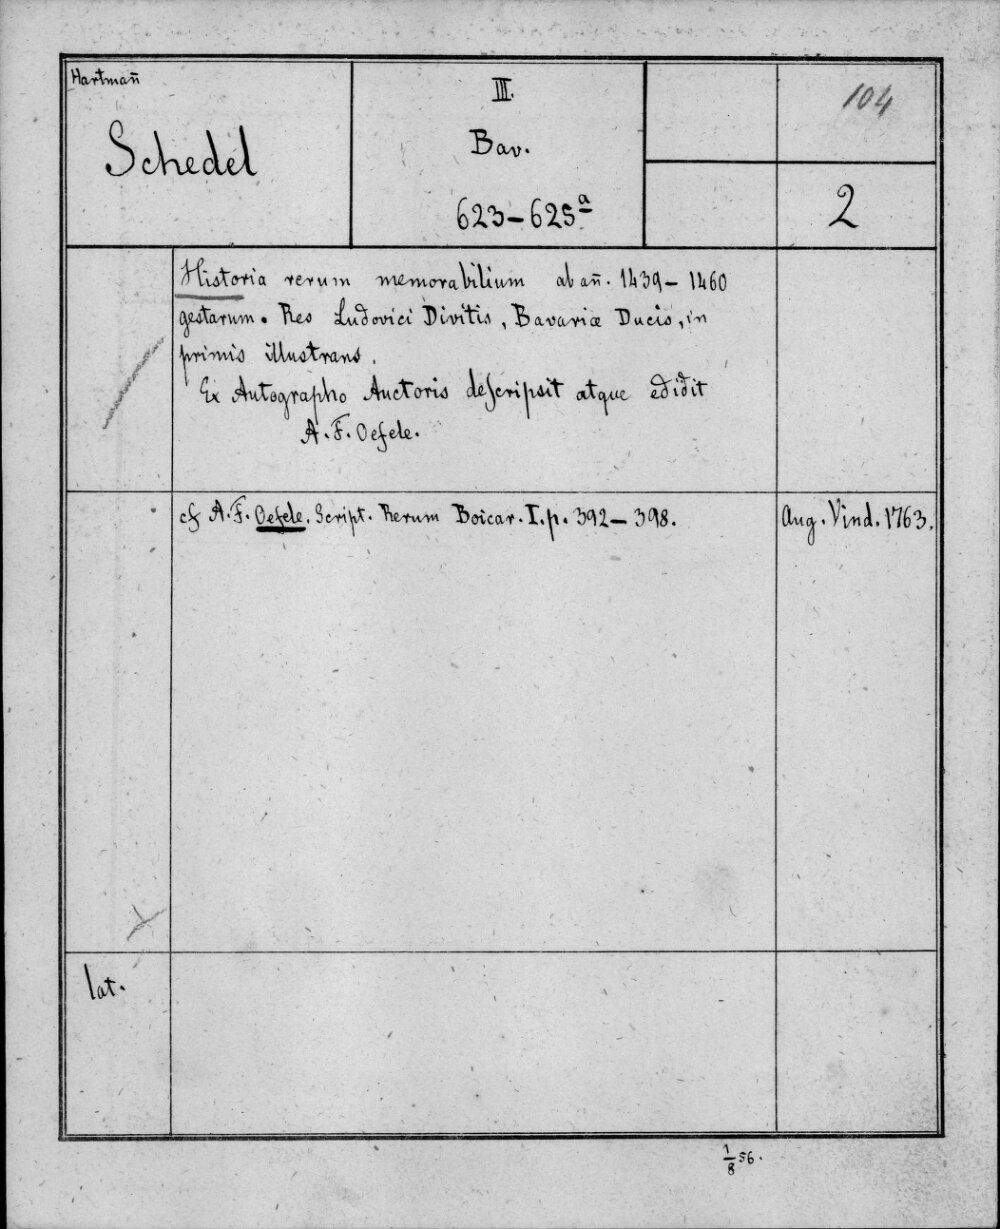 Hartman̄
Schedel
III.
Bav.
623–625ª
104
2
Historia rerum memorabilium ab an̄. 1439– 1460
gestarum. Res Ludovici Divitis, Bavariæ Ducis, in
primis illustrans.
Ex Autographo Auctoris deſcripsit atque edidit
A. F. Oefele.
cf A. F. Oefele. Script. Rerum Boicar. I. p. 392– 398.
Aug. Vind. 1763.
lat.
1/8 56.